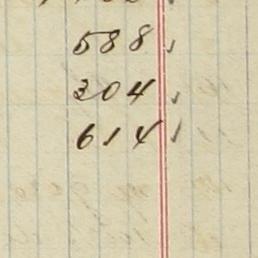 588
304
614